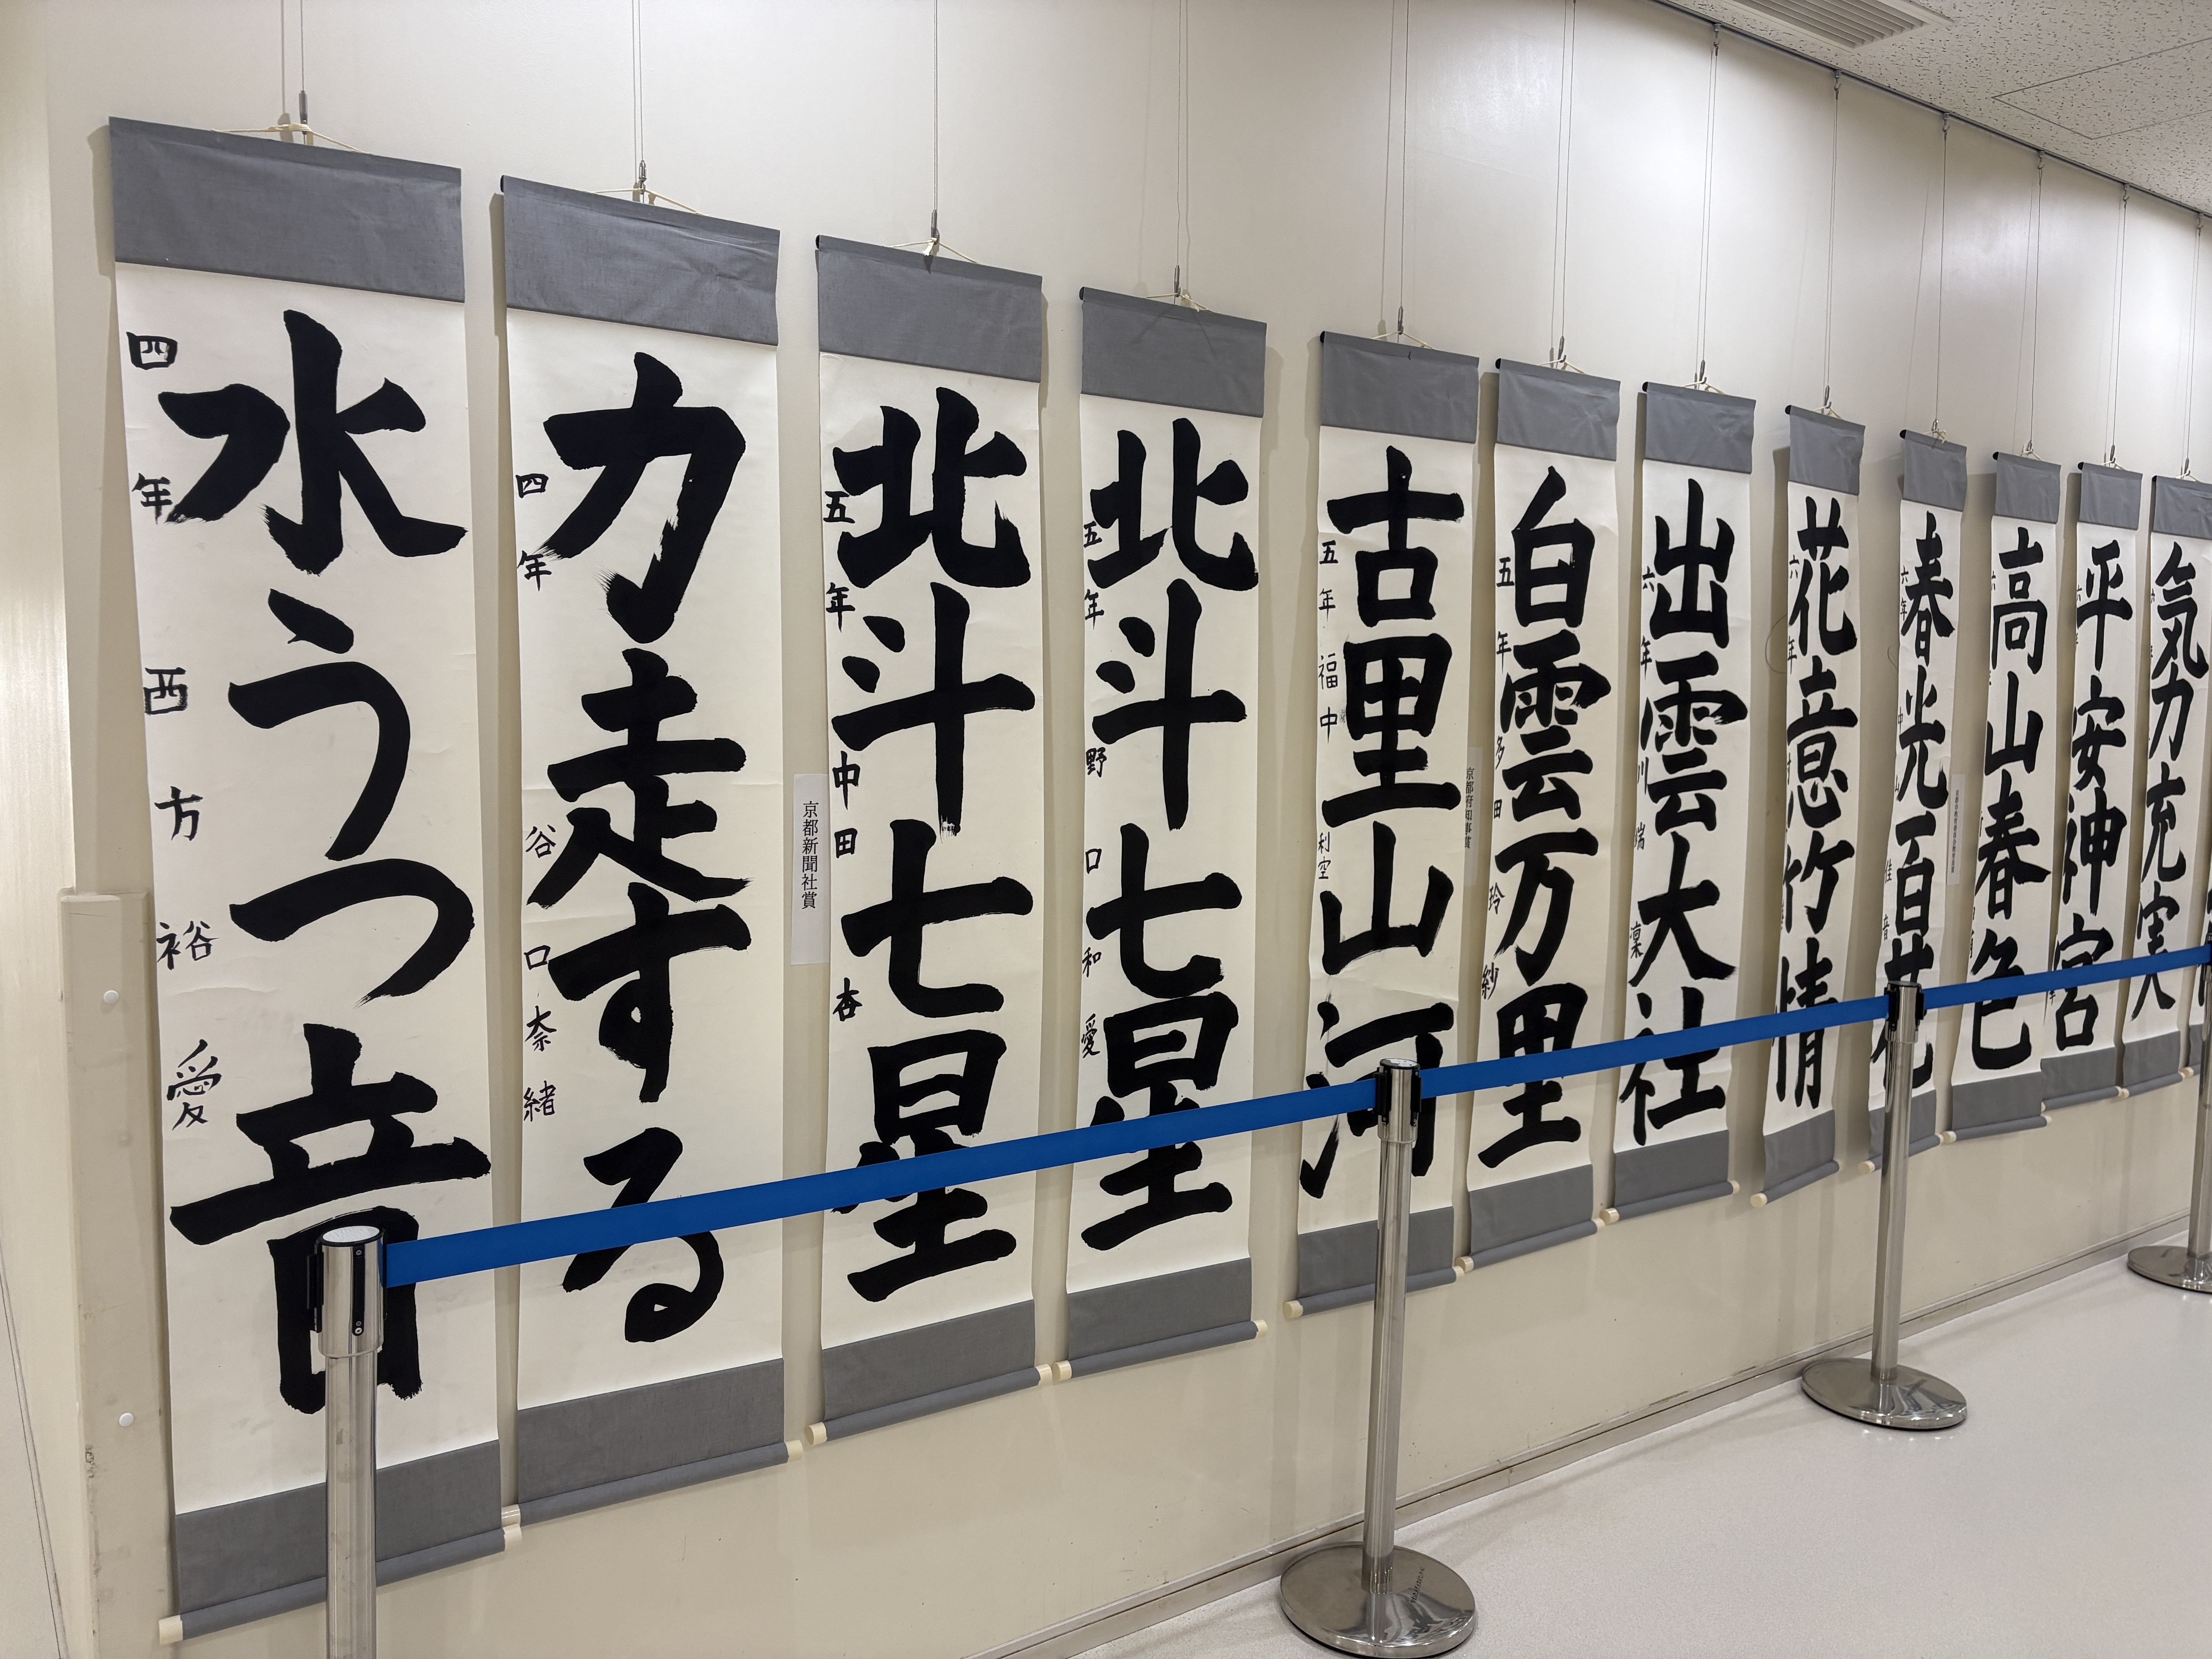 水うつ音
四年 西方裕愛
力走する
四年 谷口奈緒
京都新聞社賞
北斗七星
五年 中田杏
北斗七星
五年 野口和愛
古里山河
五年 福中利空
京都府知事賞
白雲万里
五年 多田玲紗
出雲大社
六年 川端凜
花意竹情
六年
春光百花
六年 中山佳音
高山春色
六
平安神宮
六
気力充実